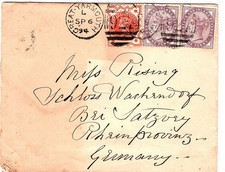 GREAT-YARMOUTH
L
SP 6
94
Miss Rising
Schloss Wachendorf
Bei Satzvey
Rheinprovinz
Germany